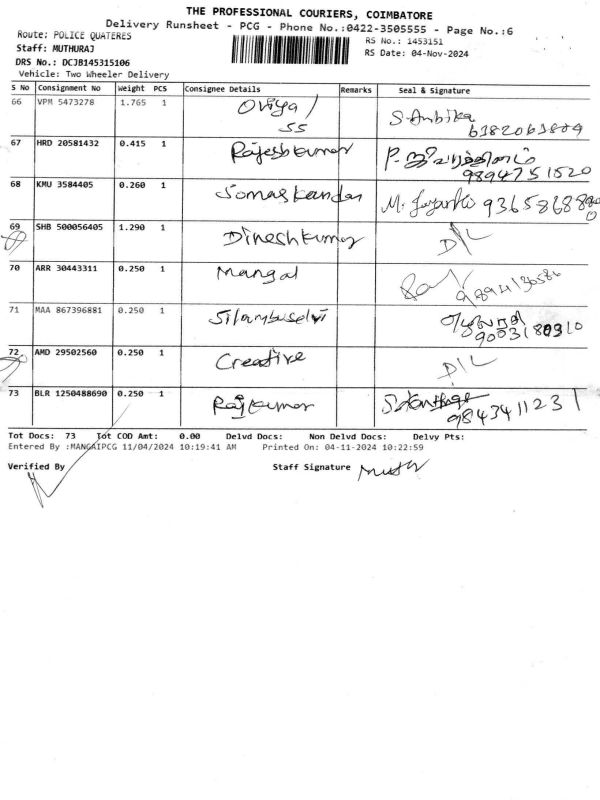 THE PROFESSIONAL COURIERS, COIMBATORE
Delivery Runsheet - PCG - Phone No.:0422-3505555 - Page No.:6
Route: POLICE QUATERES
RS No.: 1453151
Staff: MUTHURAJ
RS Date: 04-Nov-2024
DRS No.: DCJB145315106
Vehicle: Two Wheeler Delivery
S No Consignment No Weight PCS Consignee Details Remarks Seal & Signature
66 VPM 5473278 1.765 1 Oviya / SS S. Ambika
67 HRD 20581432 0.415 1 Rajeshkumar 9894751520
68 KMU 3584405 0.260 1 Somaskandan
69 SHB 500056405 1.290 1 Dineshkumar D/L
70 ARR 30443311 0.250 1 Mangal
71 MAA 867396881 0.250 1 Silambuselvi
72 AMD 29502560 0.250 1 Creative D/L
73 BLR 1250488690 0.250 1 Rajkumar 9843411231
Tot Docs: 73 Tot COD Amt: 0.00 Delvd Docs: Non Delvd Docs: Delvy Pts:
Entered By :MANGAIPCG 11/04/2024 10:19:41 AM Printed On: 04-11-2024 10:22:59
Verified By Staff Signature